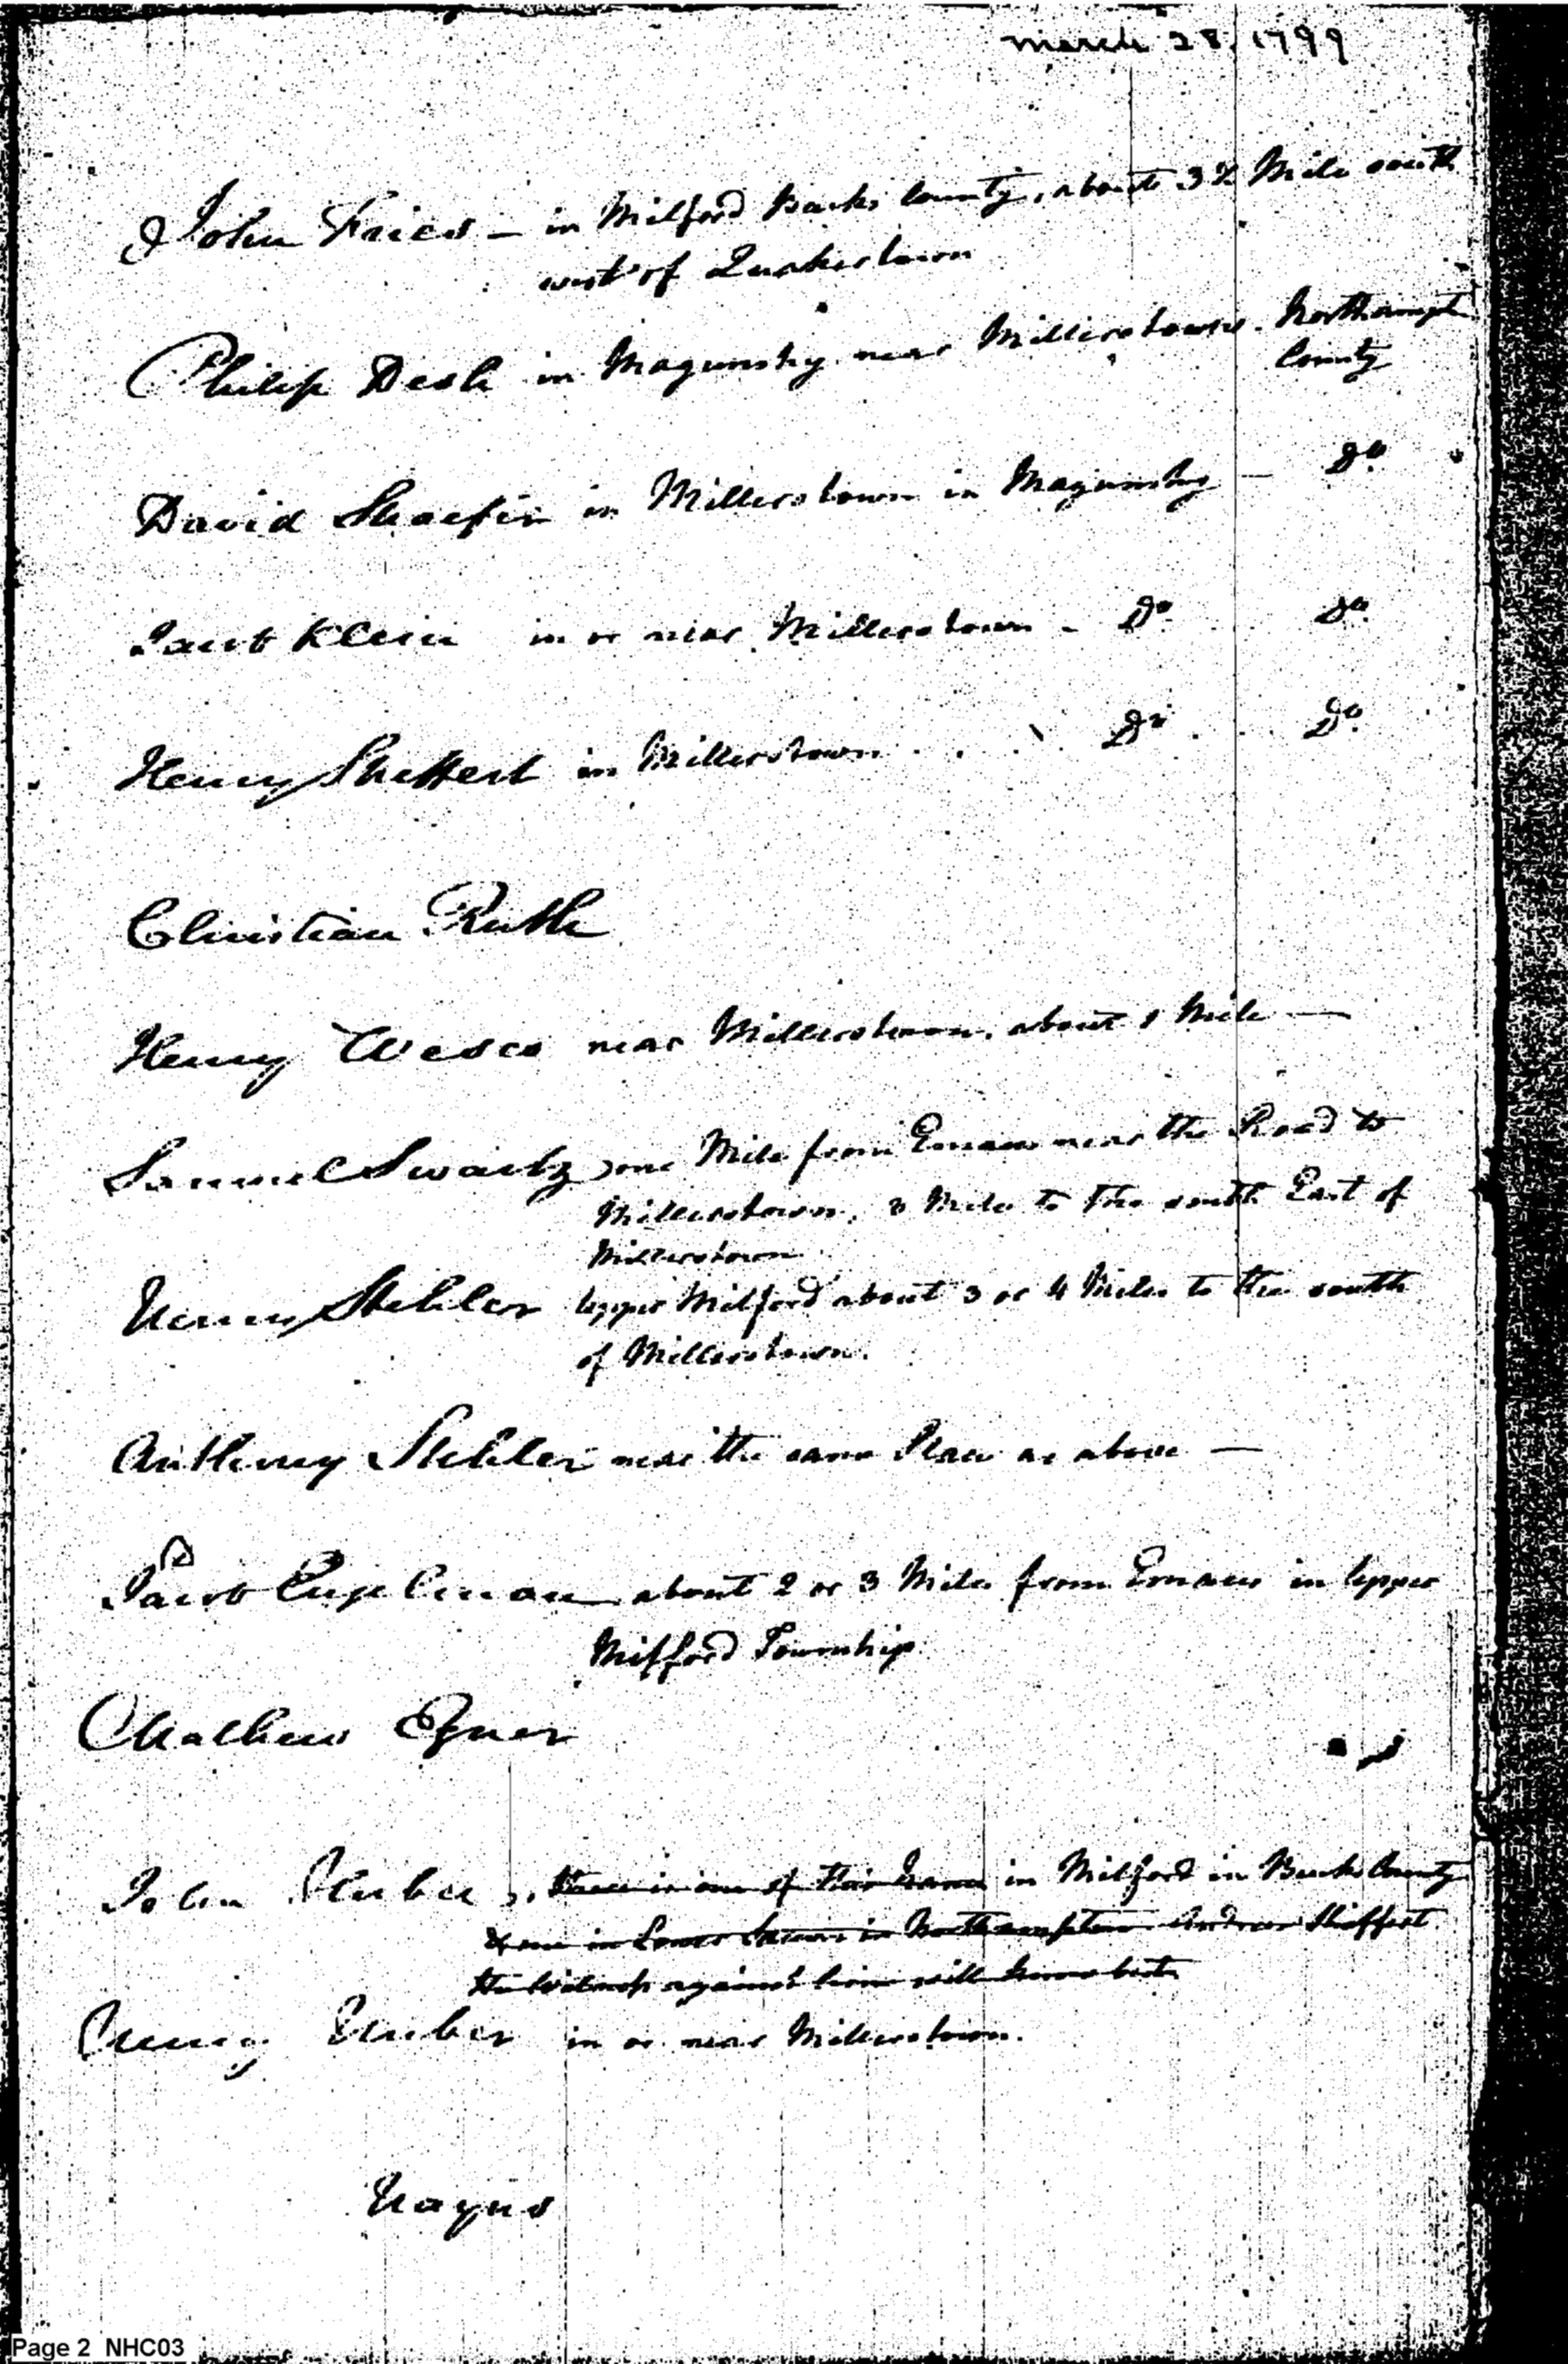 March 28, 1799
John Fries — in Milford Bucks County, about 3½ Mile south
west of Quakertown
Philip Desh in Magunshy near Millerstown. Northampt
County
David Shaefer in Millerstown in Magunshy — Do
Jacob Klein in or near Millerstown - Do Do
Henry Sheffert in Millerstown Do Do
Christian Ruth
Henry near Millerstown, about 1 Mile —
Samuel Swartz one Mile from Emaus near the Road to
Millerstown, 3 Mile to the south East of
Millerstown
Henry Stehler upper Milford about 3 or 4 Miles to the south
of Millerstown.
Anthony Stehler near the same Place as above —
Jacob about 2 or 3 Mile from Emaus in upper
Milford Township
John Huber, there is one of this Name in Milford in Bucks County
& one in Lower in Northampton Andrew Shiffert
the Witness against him will know best
Huber in or near Millerstown.
Page 2 NHC03